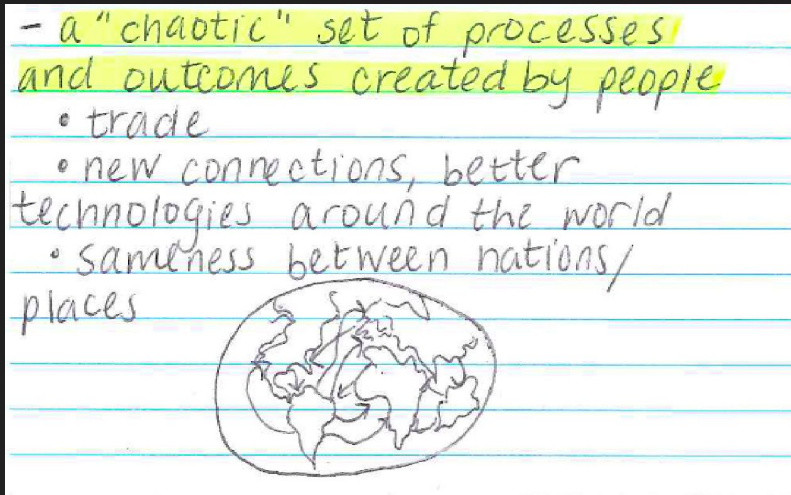 - a "chaotic" set of processes
and outcomes created by people
• trade
• new connections, better
technologies around the world
• sameness between nations/
places